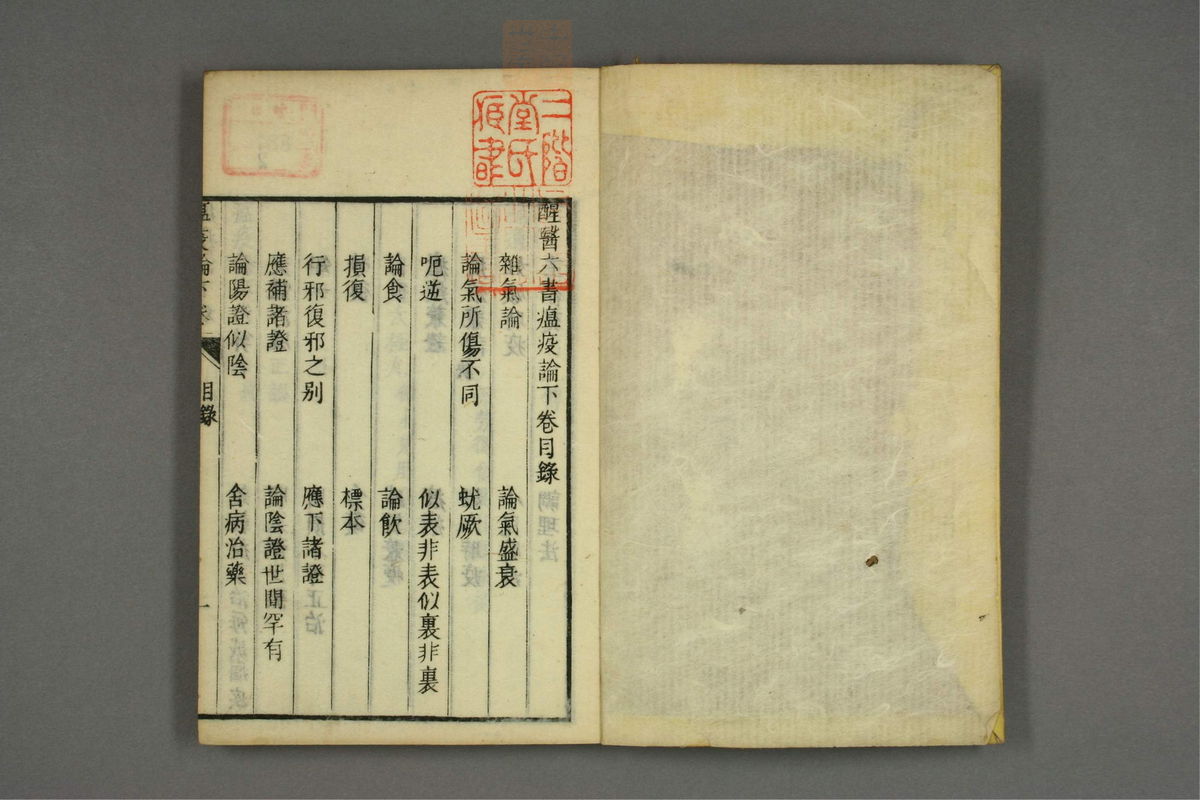 醒醫六書瘟疫論下卷目錄
雜氣論　論氣盛衰
論氣所傷不同　蚘厥
呃逆　似表非表似裏非裏
論食　論飲
損復　標本
行邪復邪之别　應下諸證
應補諸證　論陰證世間罕有
論陽證似陰　舍病治藥
目錄
一
二階
堂氏